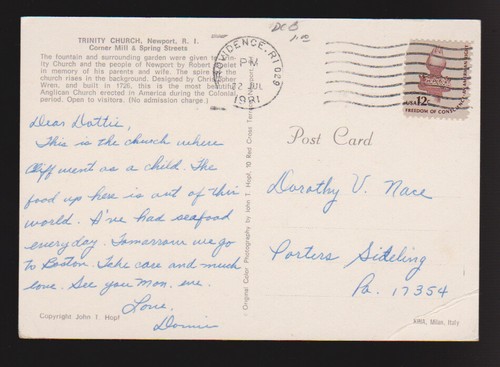 TRINITY CHURCH, Newport, R. I.
Corner Mill & Spring Streets
The fountain and surrounding garden were given to
ity Church and the people of Newport by Robert
in memory of his parents and wife. The spire
church rises in the background. Designed by Christopher
Wren, and built in 1726, this is the most beautiful
Anglican Church erected in America during the Colonial
period. Open to visitors. (No admission charge.)
Dear Dottie,
This is the church where
Cliff went as a child. The
food up here is out of this
world. I've had seafood
everyday. Tomorrow we go
to Boston. Take care and much
love. See you Mon. eve.
Love,
Copyright John T. Hopf
Original Color Photography by John T. Hopf, 10 Red Cross
PROVIDENCE, RI 029
PM
22 JUL
1981
DCB
1.00
USA 12c
FREEDOM OF
Post Card
Dorothy V. Nace
Porters Sideling
Pa. 17354
KINR, Milan, Italy